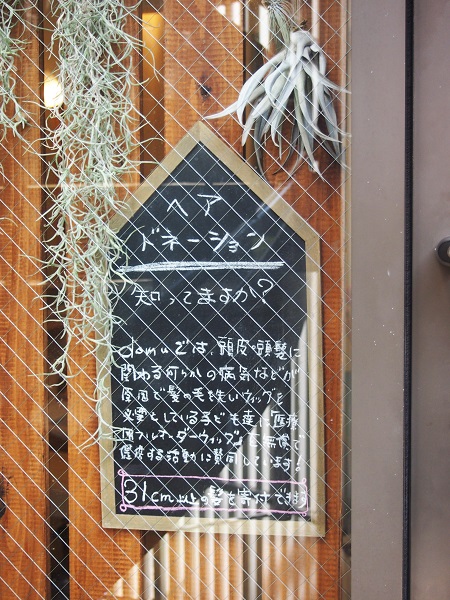 ヘア
ドネーション
知ってますか?
domuでは、頭皮や頭髪に
関わる何らかの病気などが
原因で髪の毛を失いウィッグを
必要としている子ども達に「医療
用フルオーダーウィッグ」を無償で
提供する活動に賛同しています!
31cm以上の髪を寄付できます